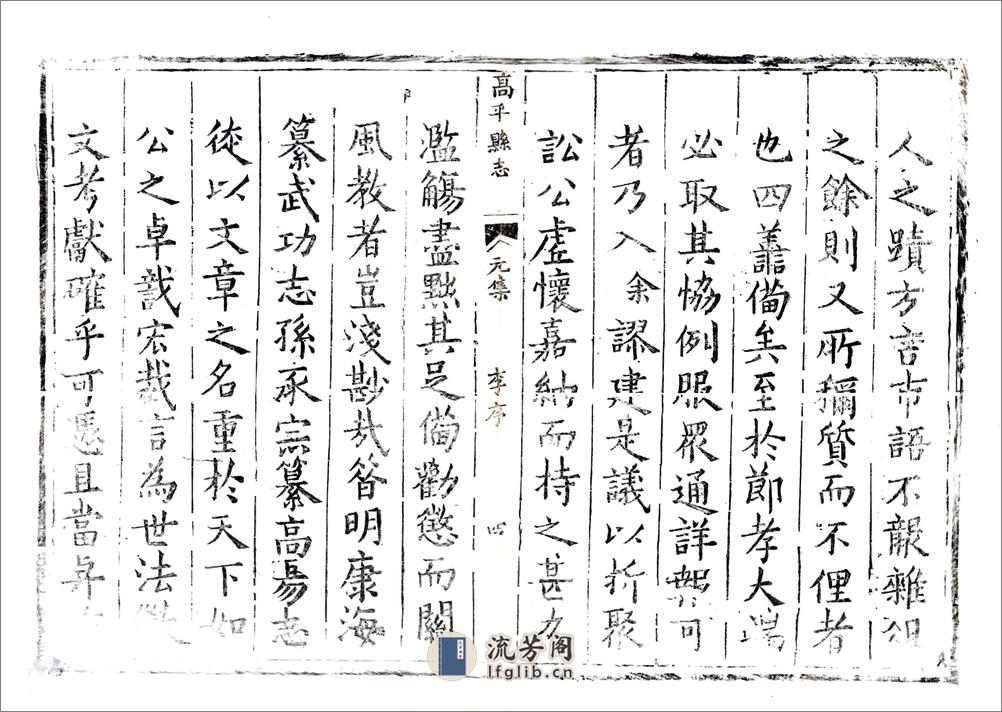 人之蹟方言市語不厭雜俎
之餘則又所稱質而不俚者
也四善備矣至於節孝大端
必取其恊例眼眾通詳報可
者乃入余謬建是議以折聚
訟公虛懷嘉納而持之甚力
高平縣志 元集 李序 四
濫觴盡黜其足備勸懲而關
風教者豈淺尠哉昔明康海
纂武功志孫丞宗纂高昜志
徒以文章之名重於天下如
公之卓識宏裁言為世法
文考獻確乎可憑且當
流芳阁
lfglib.cn